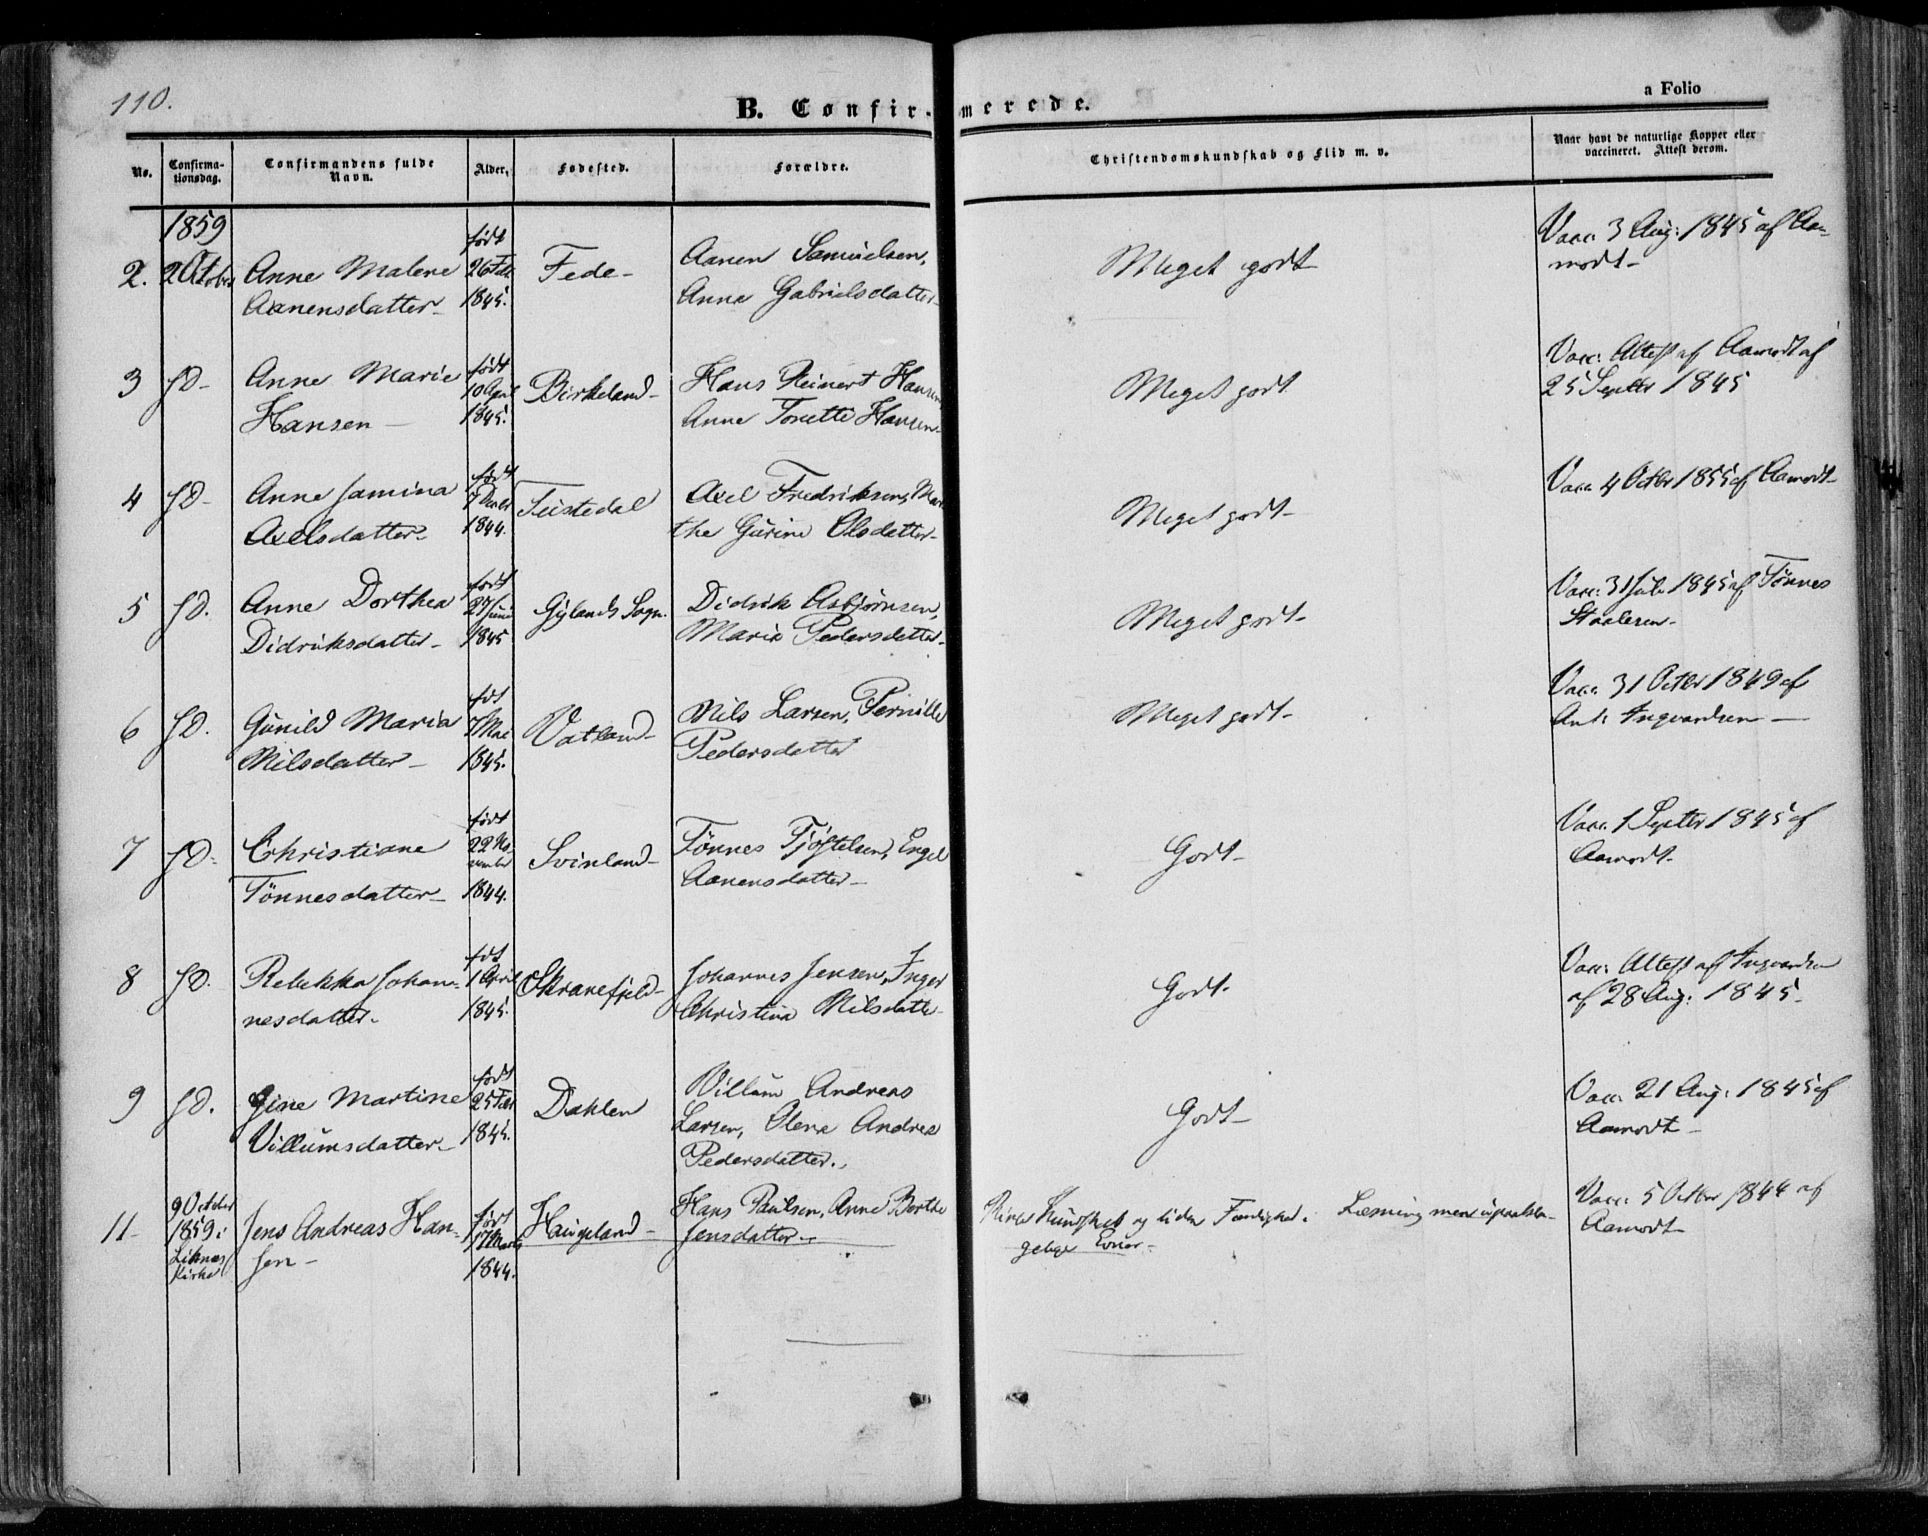 110.
B. Confirmerede.
a Folio
No.
Confirma-
tionsdag.
Confirmandens fulde
Navn.
Alder.
Fødested.
Forældre.
Christendomskundskab og Flid m. v.
Naar havt de naturlige Kopper eller
vaccineret. Attest derom.
1859
2. 2 October Anne Malene Aanensdatter født 26 Feb 1845. Fede Aanen Samuelsen, Anne Gabrielsdatter Meget godt Vacc. 3 Aug: 1845 af Aamodt
3 sD Anne Marie Hansen født 10 April 1845. Birkeland Hans Reinert Hansen, Anne Torette Hansen Meget godt Vacc: Attest af Aamodt af 25 Septbr 1845
4 sD Anne Jamina Axelsdatter født 7 1844. Tuistedal Axel Fredriksen, Marthe Gurine Olsdatter Meget godt Vacc 4 Octbr 1855 af Aamodt
5 sD. Anne Dorthea Didriksdatter født 27 Juni 1845 Gylands Sogn. Didrik Asbjørnsen, Maria Pedersdatter Meget godt Vacc: 31 Juli 1845 af Tønnes Staalesen
6 sD. Gunild Maria Nilsdatter fdt 7 Mai 1845. Vatland Nils Larsen, Pernille Pedersdatter Meget godt Vacc. 31 Octbr 1849 af Ant: Ingvardsen
7 sD. Christiane Tönnesdatter født 22 November 1844. Svinland Tönnes Tjøstelsen, Engel Aanensdatter Godt Vacc. 1 Septbr 1845 af Aamodt
8 sD. Rebekka Johannesdatter. fdt 1 April 1845. Skranefjeld Johannes Jensen, Inger Christina Nilsdatter Godt Vacc: Attest af Ingvardsen af 28 Aug: 1845.
9 sD. Gine Martine Villumsdatter født 25 Feb 1845. Dahlen Villum Andreas Larsen, Olene Andrea Pedersdatter. Godt Vacc. 21 Aug: 1845 af Aamodt
11 9 October 1859 i Liknes Kirke Jens Andreas Hansen født 17 Marts 1844. Haugeland Hans Paulsen, Anne Berthe Jensdatter Kundskab og liden Færdighed i Læsning men upaaklagelige Evner. Vacc: 5 Octbr 1844 af Aamodt